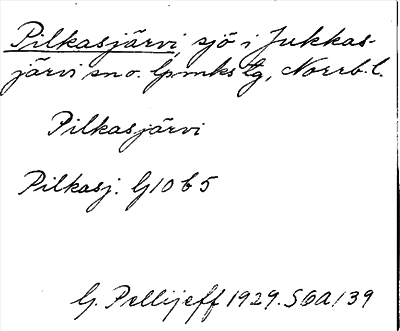 Pilkasjärvi, sjö i Jukkas-
järvi sn o. lpmks tg, Norrb. l.
Pilkasjärvi
Pilkasj. G10b5
G. Pellijeff 1929. SOA/39